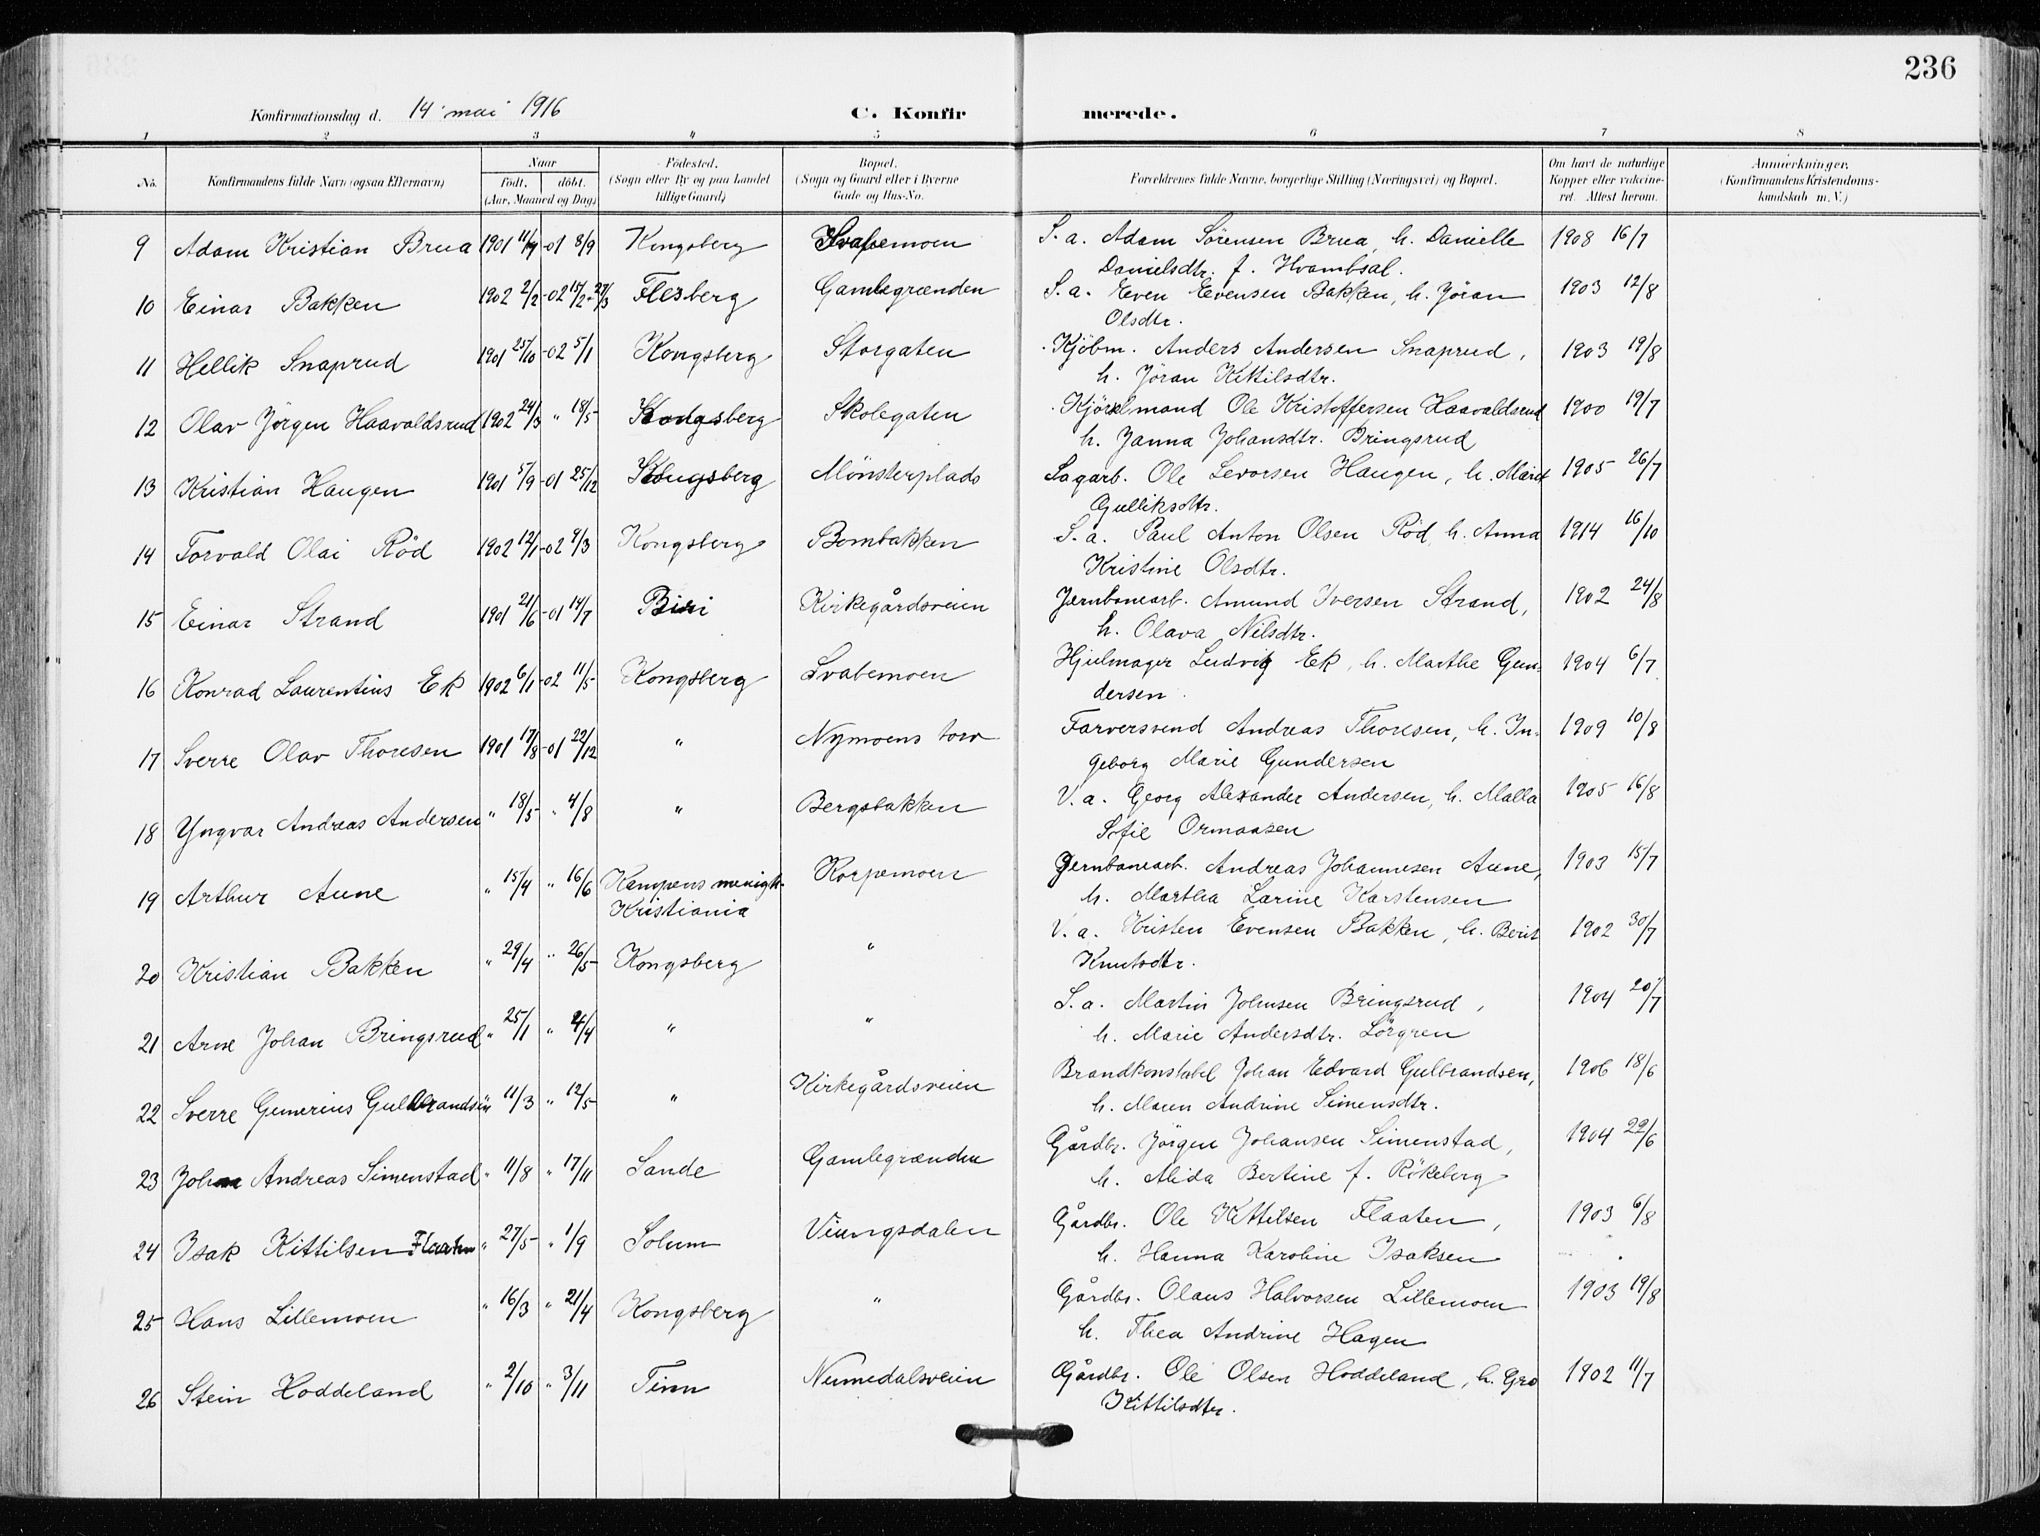 236
Konfirmationsdag d. 14 mai 1916 C. Konfirmerede.
1 2 3 4 5 6 7 8
No. Konfirmandens fulde Navn (ogsaa Efternavn) Naar født, døbt. (Aar, Maaned og Dag) Fødested. (Sogn eller By og paa Landet tillige Gaard) Bopæl. (Sogn og Gaard eller i Byerne Gade og Hus-No. Forældrenes fulde Navne, borgerlige Stilling (Næringsvei) og Bopæl. Om havt de naturlige Kopper eller vakcineret. Attest herom. Anmærkninger. (Konfirmandens Kristendomskundskab m. V.)
9 Adam Kristian Brua 1901 -01 8/9 Kongsberg S.a. Adam Sørensen Brua, h. Danielle 1908 16/7
Danielsdtr. f. Hvambsal.
10 Einar Bakken 1902 2/2 -02 15/2 - 27/3 Flesberg Gamlegrænden S.a. Even Evensen Bakken, h. Jøran 1903 12/8
Olsdtr.
11 Hellik Snaprud 1901 25/10 -02 5/1 Kongsberg Storgaten Kjøbm. Anders Andersen Snaprud, 1903 19/8
h. Jøran Kittilsdtr.
12 Olav Jørgen Haavaldsrud 1902 24/3 " 18/5 Kongsberg Skolegaten Kjørelmand Ole Kristoffersen Haavaldsrud 1900 19/7
h. Janna Johansdtr. Bringsrud
13 Kristian Haugen 1901 5/9 -01 25/12 Kongsberg Mønsterplads Sagarb. Ole Levorsen Haugen, h. Marit 1905 26/7
Gulliksdtr.
14 Torvald Olai Rød 1902 12/1 -02 9/3 Kongsberg Bombakken S.a. Paul Anton Olsen Rød, h. Anna 1914 16/10
Kristine Olsdtr.
15 Einar Strand 1901 21/6 -01 14/7 Biri Kirkegårdsveien Jernbanearb. Amund Iversen Strand, 1902 24/8
h. Olava Nilsdtr.
16 Konrad Laurentius Ek 1902 6/1 -02 11/5 Kongsberg Svabemoen Hjulmager Ludvig Ek, h. Marthe Gun- 1904 6/7
dersen.
17 Sverre Olav Thoresen 1901 17/8 -01 22/12 " Nymoens torv Farversvend Andreas Thoresen, h. In- 1909 10/8
geborg Marie Gundersen
18 Yngvar Andreas Andersen " 18/5 " 4/8 " Bergsbakken V.a. Georg Alexander Andersen, h. Malla 1905 16/8
Sofie Ormaasen
19 Arthur Aune " 15/4 " 16/6 Kampens menigh. Korpemoen Jernbanearb. Andreas Johannesen Aune, 1903 15/7
Kristiania h. Martha Larine Karstensen
20 Kristian Bakken " 29/4 " 26/5 Kongsberg " V.a. Kristen Evensen Bakken, h. Berit 1902 30/7
Knutsdtr.
21 Arne Johan Bringsrud " 25/1 " 4/4 " " S.a. Martin Johnsen Bringsrud, 1904 20/7
h. Marie Andersdtr. Lørgren
22 Sverre Gunerius Gulbrandsen " 11/3 " 12/5 " Kirkegårdsveien Brandkonstabel Johan Edvard Gulbrandsen, 1906 18/6
h. Maren Andrine Simensdtr.
23 Johan Andreas Simenstad " 11/8 " 17/11 Sande Gamlegrænden Gårdbr. Jørgen Johansen Simenstad, 1904 22/6
h. Alida Bertine f. Røkeberg
24 Isak Kittilsen Flaaten " 27/5 " 1/9 Solum Viungsdalen Gårdbr. Ole Kittilsen Flaaten, 1903 6/8
h. Hanna Karoline Isaksen
25 Hans Lillemoen " 16/3 " 21/4 Kongsberg " Gårdbr. Olaus Halvorsen Lillemoen 1903 19/8
h. Thea Andrine Hagen
26 Stein Hoddeland " 2/10 " 3/11 Tinn Numedalsveien Gårdbr. Ole Olsen Hoddeland, h. Gro 1902 11/7
Kittilsdtr.